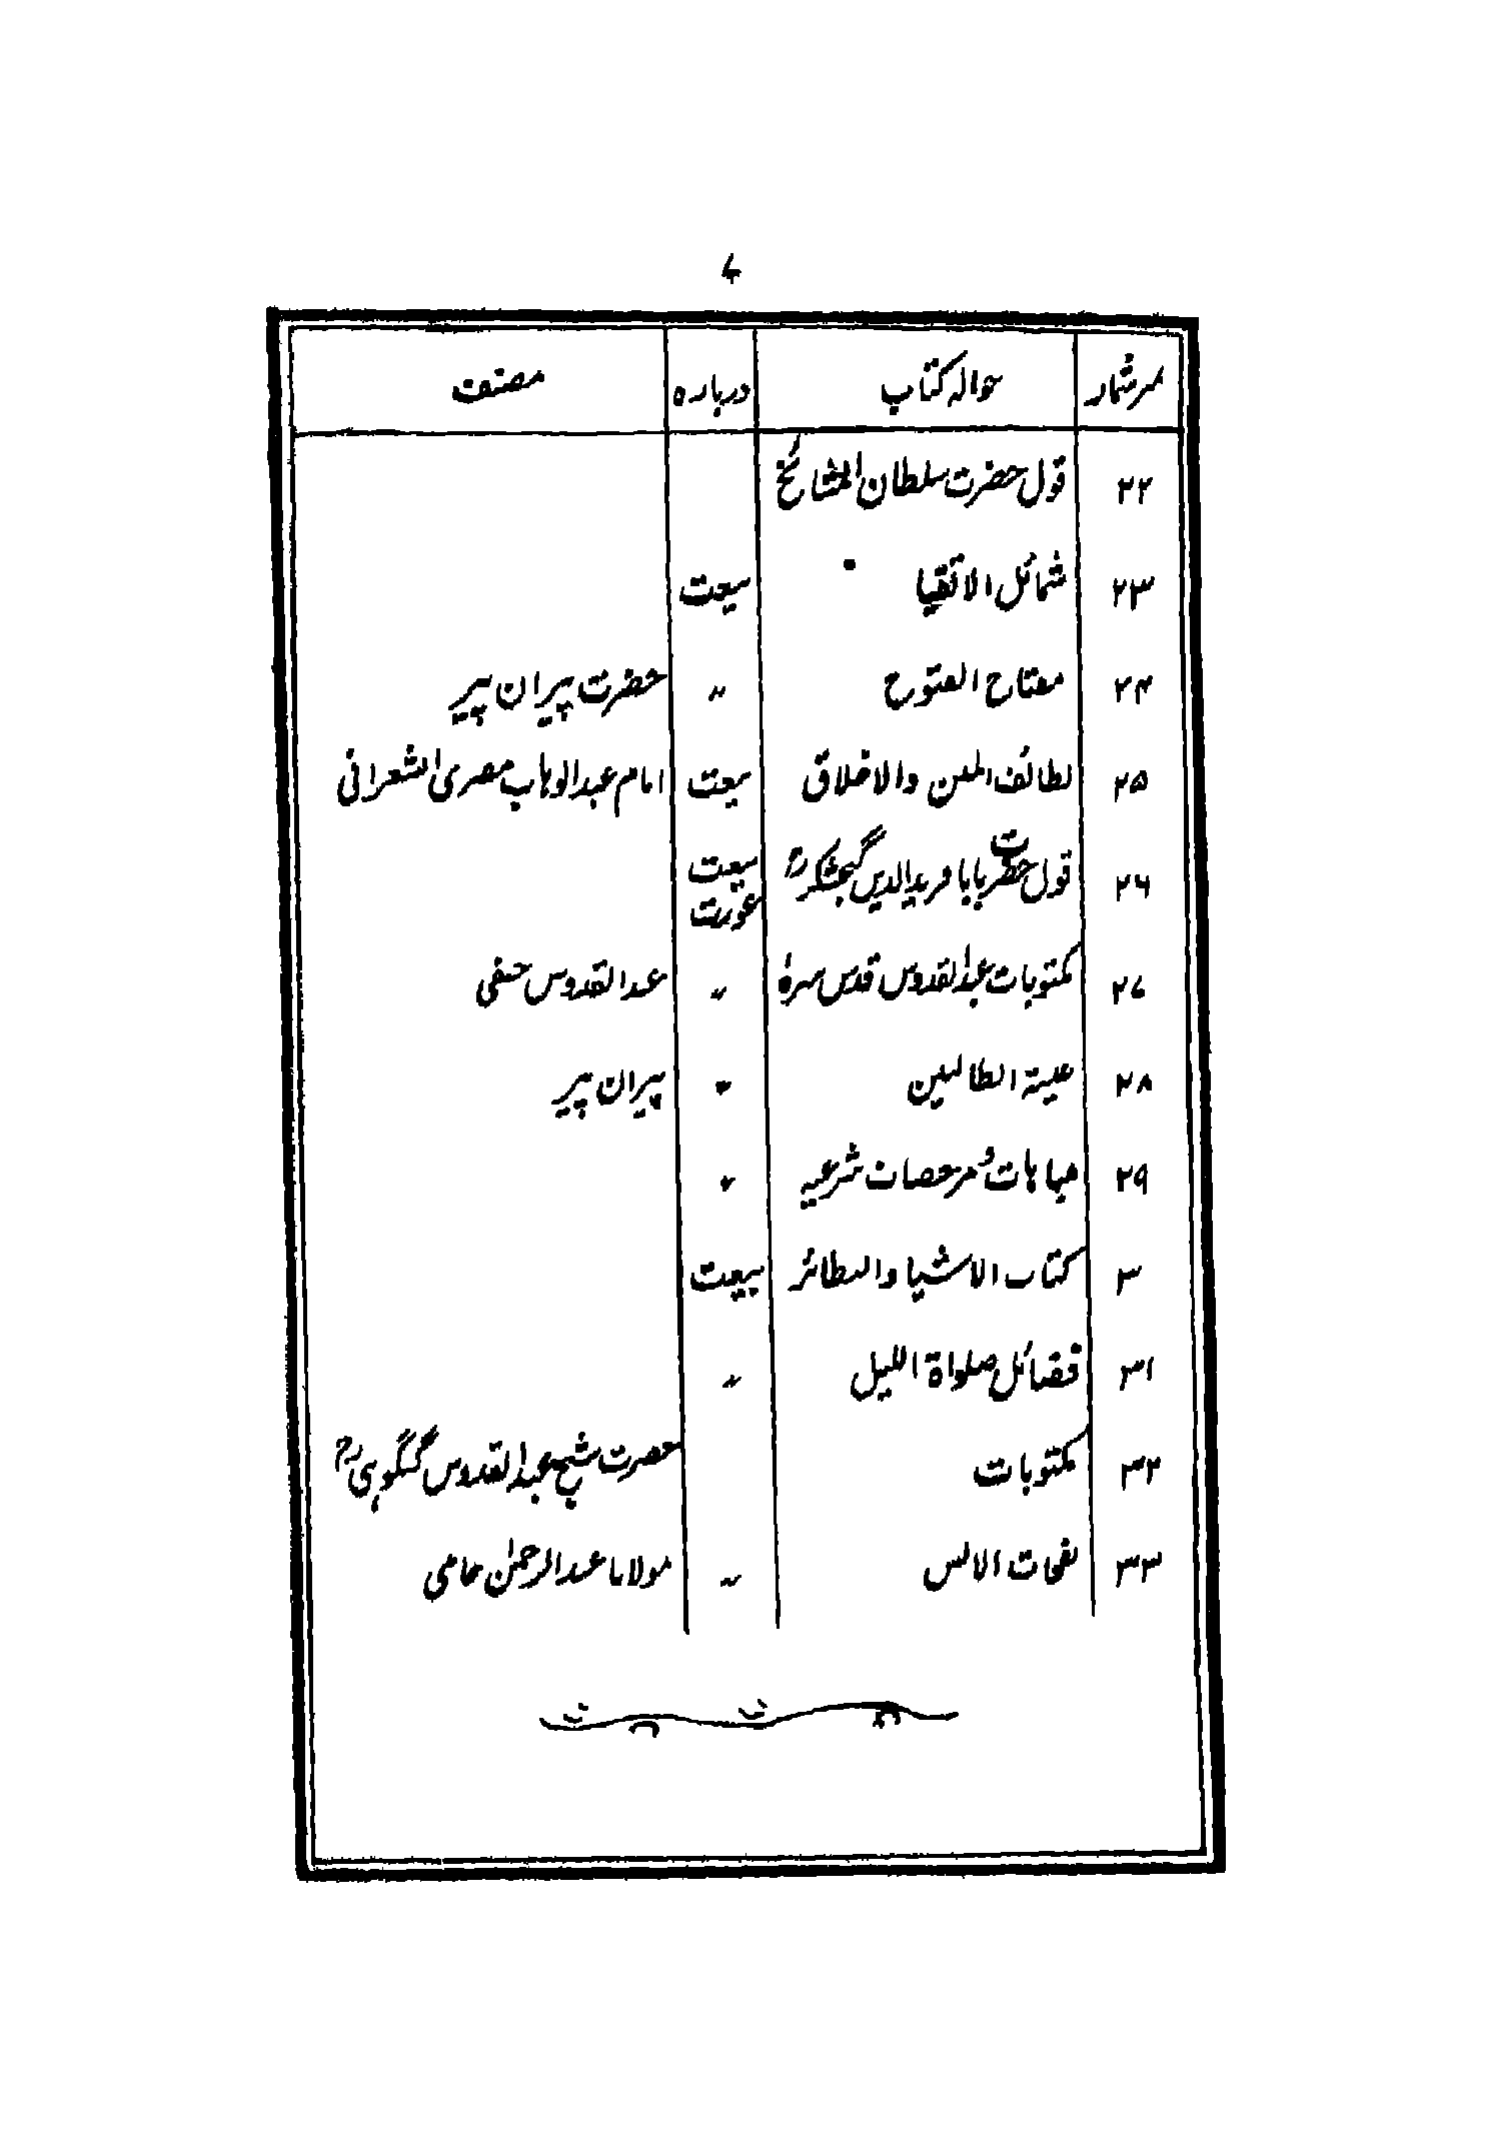 ۷
سرشمار حوالہ کتاب درباره مصنف
۲۲ قول حضرت سلطان المشائخ
۲۳ شمائل الاتقیا بیعت
۲۴ مفتاح الفتوح 〃 حضرت پیران پیر
۲۵ لطائف المنن والاخلاق بیعت امام عبدالوہاب مصری الشعرانی
۲۶ قول حضرت بابا فریدالدین گنجشکرؒ بیعت عورت
۲۷ مکتوبات عبدالقدوس قدس سرہٗ 〃 عبدالقدوس حنفی
۲۸ غنیۃ الطالبین 〃 پیران پیر
۲۹ مباہات و مرخصات شرعیہ 〃
۳ کتاب الاشباہ والنظائر بیعت
۳۱ فضائل صلواۃ اللیل 〃
۳۲ مکتوبات حضرت شیخ عبدالقدوس گنگوہیؒ
۳۳ نفحات الانس 〃 مولانا عبدالرحمٰن جامی